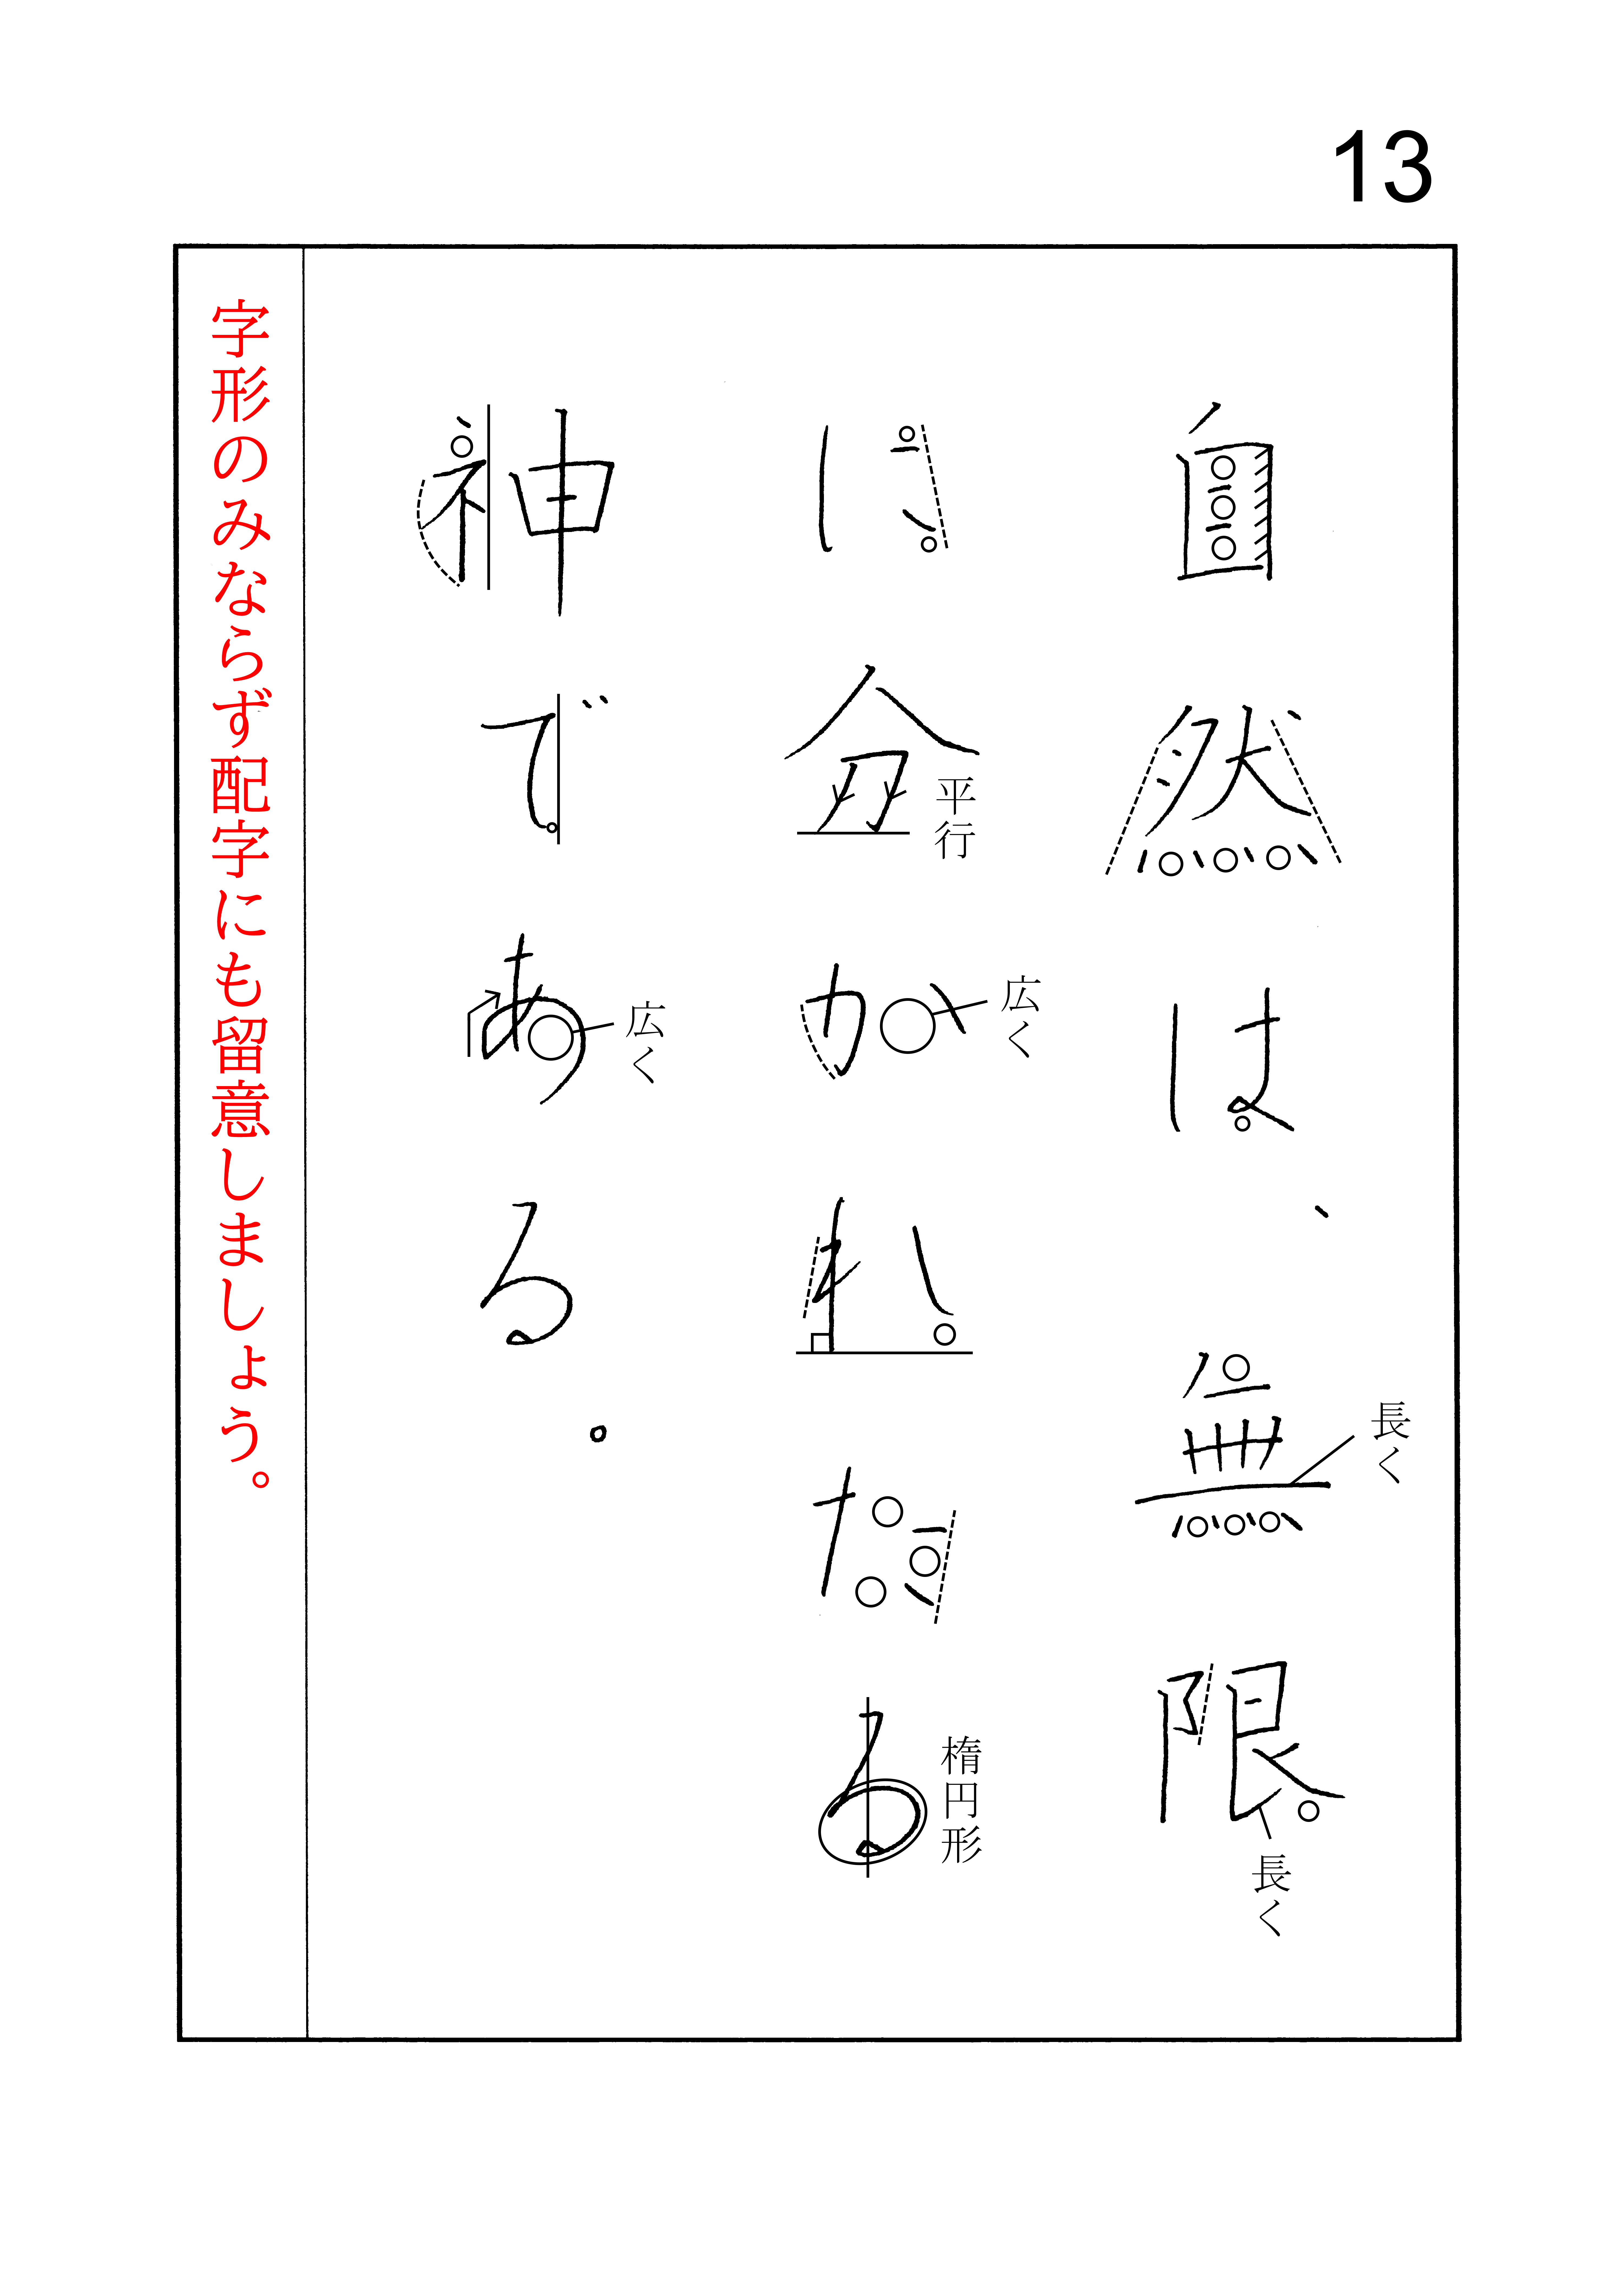 13
自然は、無限
長く
長く
に分かれたる
平行
広く
楕円形
神である。
広く
字形のみならず配字にも留意しましょう。